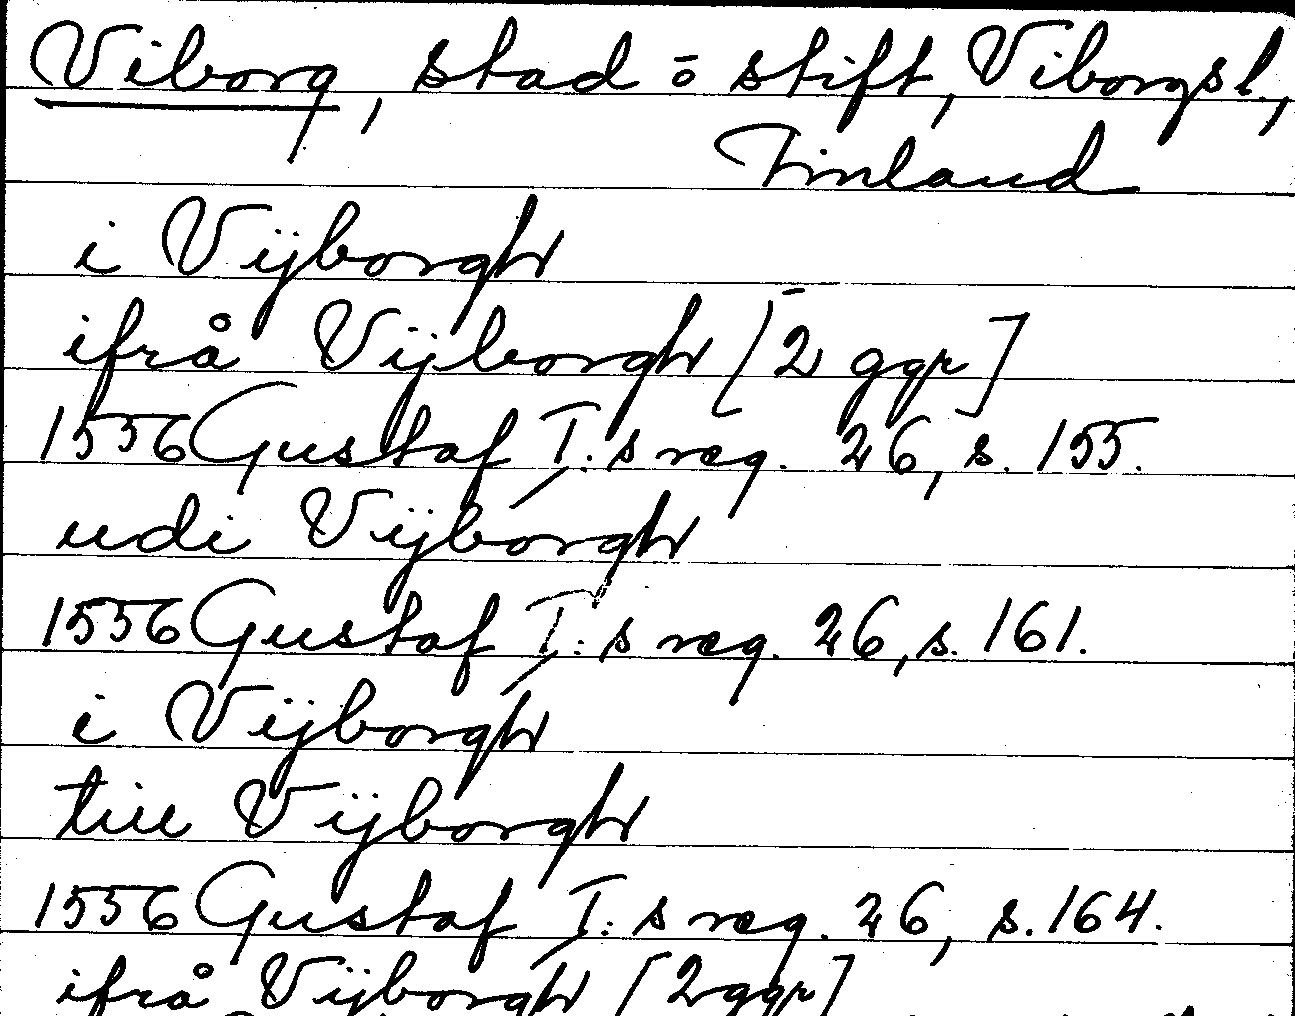 Viborg, stad o stift, Viborgsl,
Finland
i Vijborgh
ifrå Vijborgh [2 ggr]
1556 Gustaf I:s reg. 26, s. 155.
udi Vijborgh
1556 Gustaf I:s reg. 26, s. 161.
i Vijborgh
till Vijborgh
1556 Gustaf I:s reg. 26, s. 164.
ifrå Vijborgh [2 ggr]